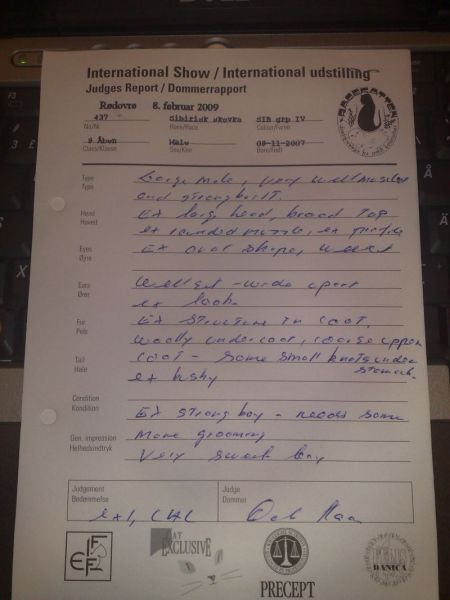 International Show / International udstilling
Judges Report / Dommerrapport
Rødovre 8. februar 2009
437 Sibirisk skovka SIB grp IV
No/Nr. Race/Race Colour/Farve
9 Åben Male 08-11-2007
Class/Klasse Sex/Køn Born/Født
Type Large male, very well muscled
Type and strong built.
Head Ex long head, broad top
Hoved ex rounded muzzle, ex profile
Eyes Ex oval shape,
Øjne
Ears Well set - wide apart
Ører ex
Fur Ex structure in coat,
Pels woolly undercoat, coarse upper
Tail coat - some small knots under stomach.
Hale ex bushy
Condition
Kondition Ex strong boy - needs some
Gen. impression more grooming
Helhedsindtryk Very sweet boy
Judgement Judge
Bedømmelse Dommer
Ex 1,
FIFE
CAT EXCLUSIVE
PRECEPT
DANICA